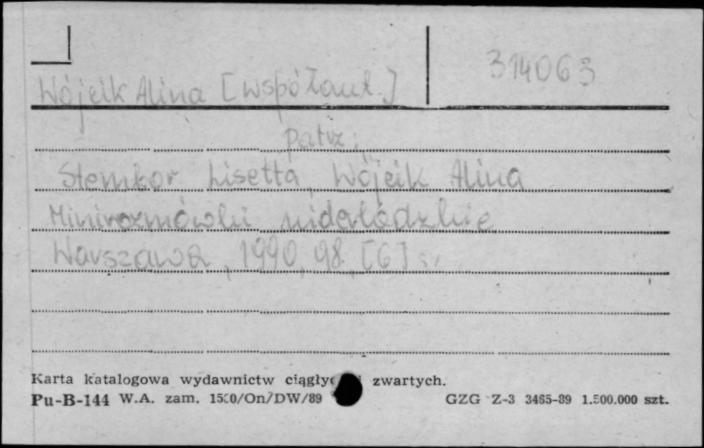 314063
Wójcik Alina [współaut.]
patrz:
Stemkor Lisetta, Wójcik Alina
Minirozmówki niderlandzkie
Warszawa, 1990, 98, [6] s.
Karta katalogowa wydawnictw ciągłyc i zwartych.
Pu-B-144 W.A. zam. 1500/On/DW/89 GZG Z-3 3465-89 1.500.000 szt.